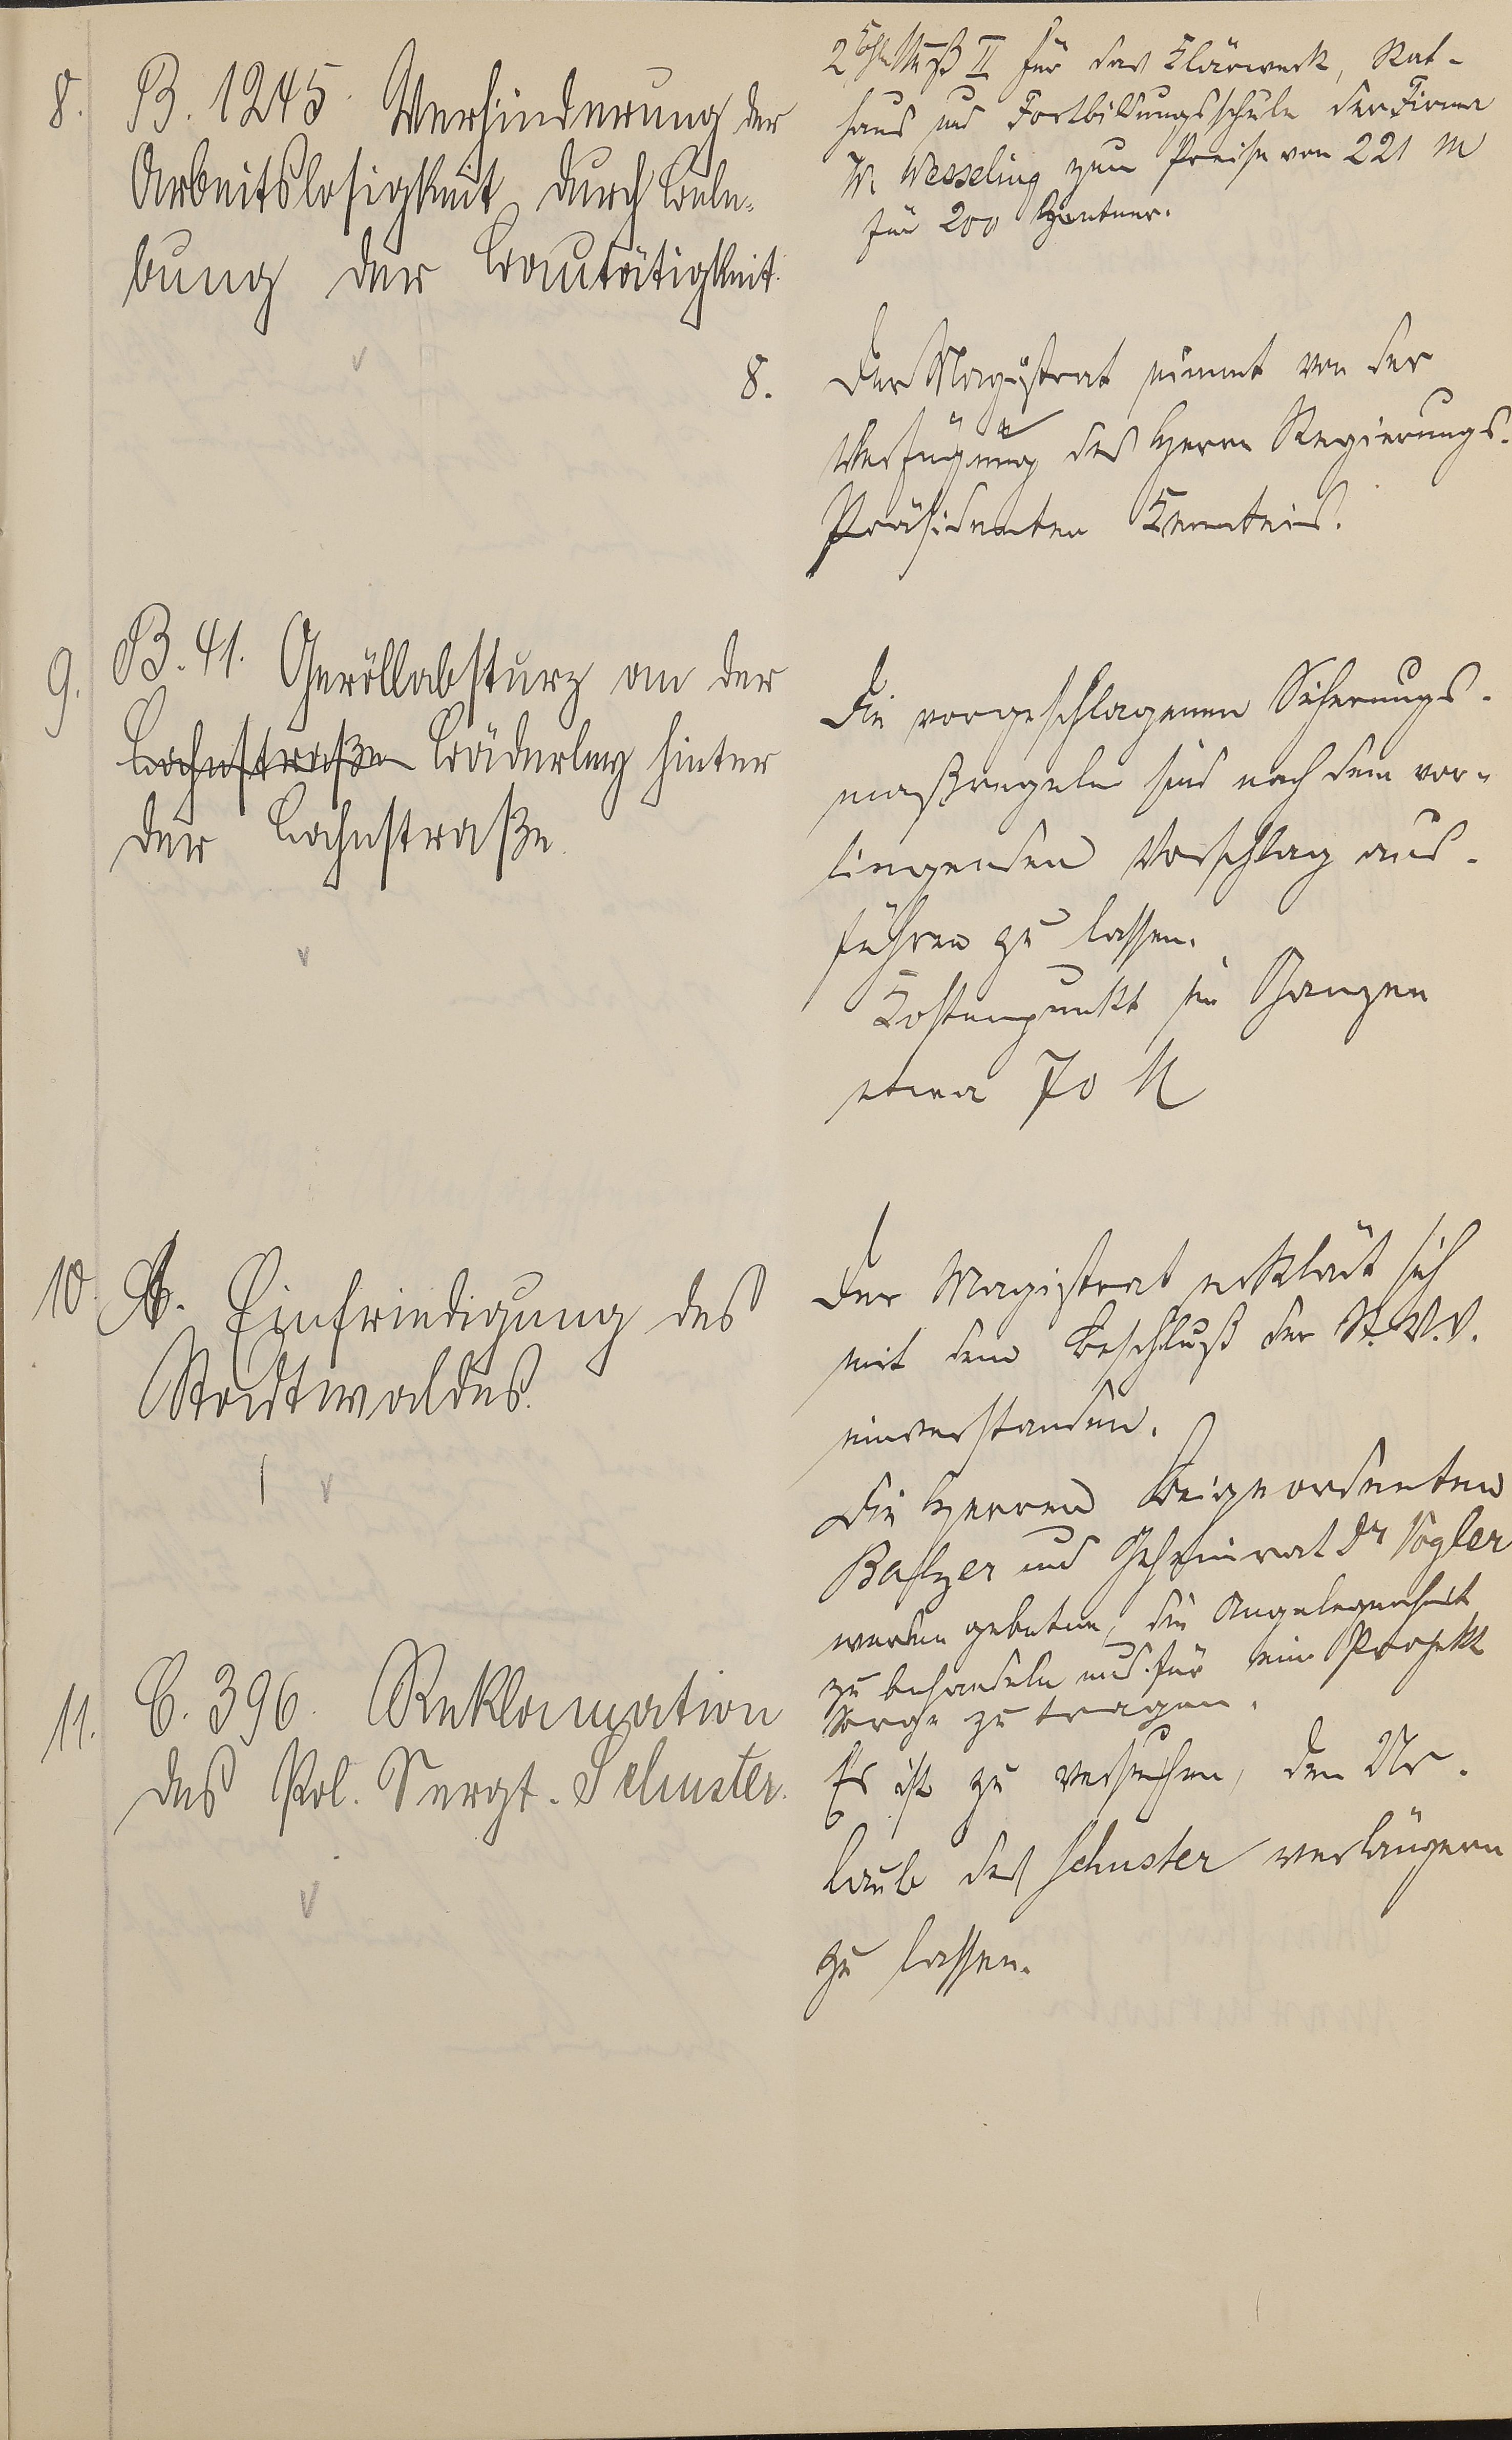 8. B. 1245. Verhinderung der
Arbeitslosigkeit durch Bele-
bung der Bautätigkeit.
9. B. 41. Geröllabsturz an der
Lahnstraße Bäderley hinter
der Lahnstraße.
10. A. Einfriedigung des
Stadtwaldes.
11. C. 396. Reklamation
des Pol. Sergt. Schuster.
Nuß II für das Klärwerk, Rat-
haus und Fortbildungsschule der Firma
W. Wesseling zum Preise von 221 M
für 200 Zentner.
8. Der Magistrat nimmt von der
Verfügung des Herrn Regierungs-
Präsidenten Kenntnis.
Die vorgeschlagenen Sicherungs-
maßregeln sind nach dem vor-
liegenden Vorschlag aus-
führen zu lassen.
Kostenpunkt im Ganzen
etwa 70 M
Der Magistrat erklärt sich
mit dem Beschluß der St.V.V.
einverstanden.
Die Herren Beigeordneten
Balzer und Geheimrat Dr Vogler
werden gebeten, die Angelegenheit
zu behandeln und für ein Projekt
Sorge zu tragen.
Es ist zu versuchen, den Ur-
laub des Schuster verlängern
zu lassen.